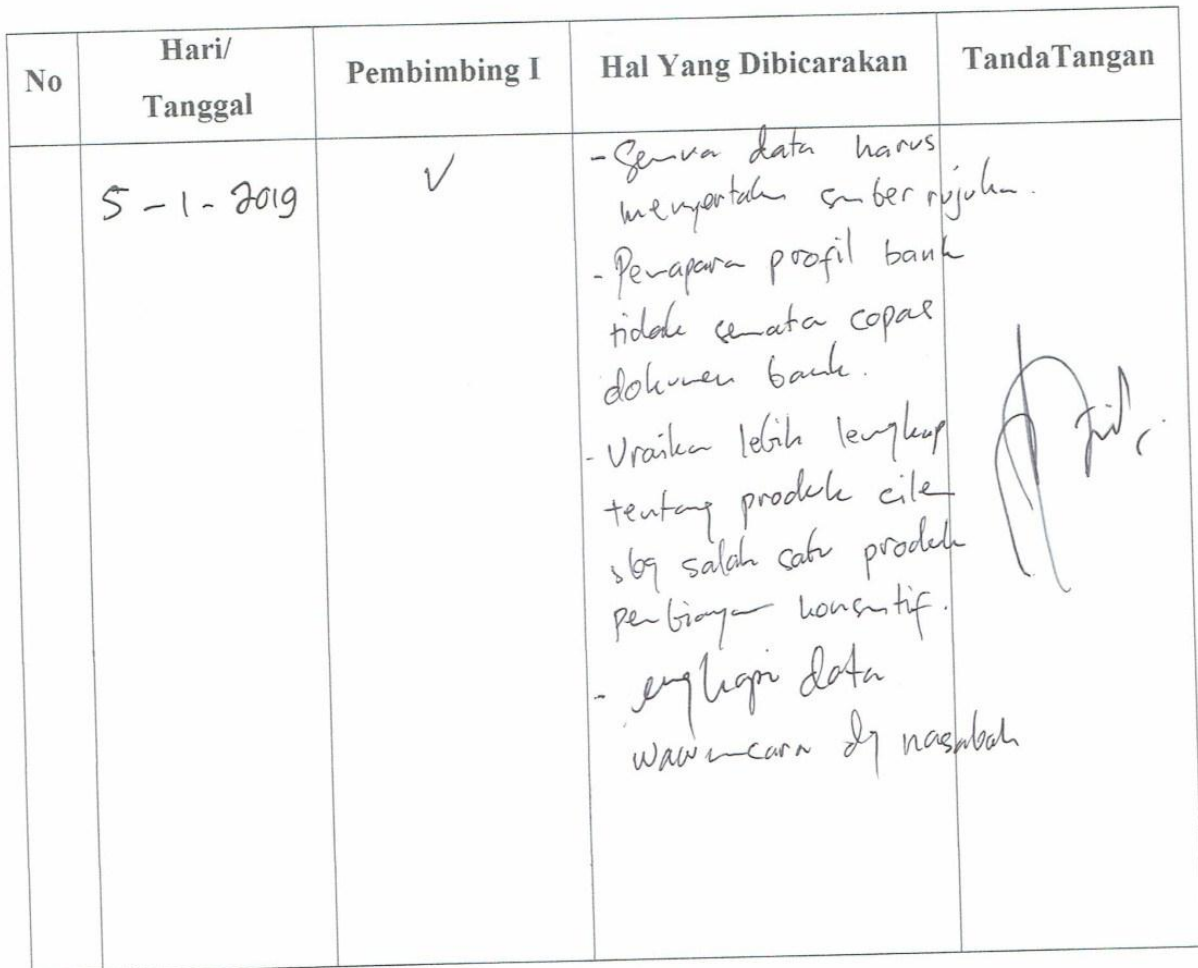 No
Hari/
Tanggal
Pembimbing I
Hal Yang Dibicarakan
TandaTangan
5-1-2019
V
- Semua data harus
menyertakan sumber rujukan.
- Pemaparan profil bank
tidak semata copas
dokumen bank.
- Uraikan lebih lengkap
tentang produk
sbg salah satu produk
pembiayaan konsumtif.
- lengkapi data
wawancara dg nasabah